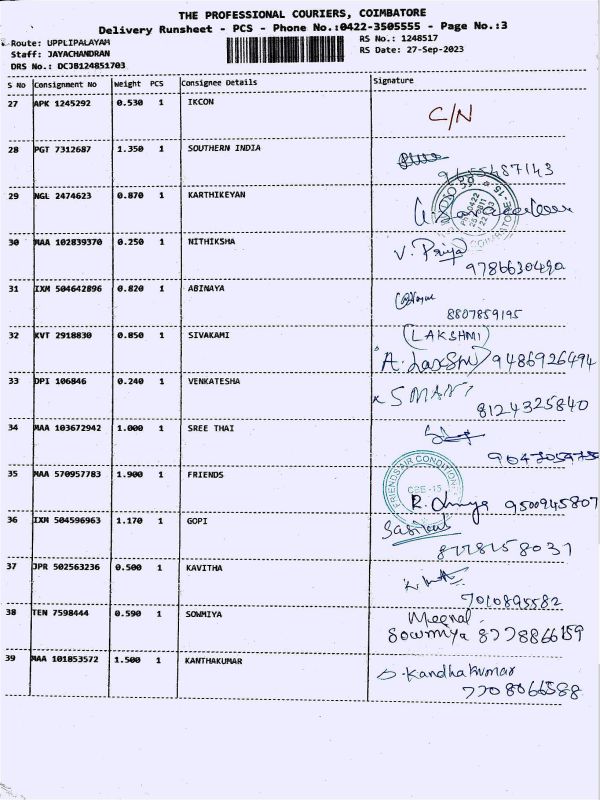 THE PROFESSIONAL COURIERS, COIMBATORE
Delivery Runsheet - PCS - Phone No.:0422-3505555 - Page No.:3
Route: UPPLIPALAYAM
RS No.: 1248517
Staff: JAYACHANDRAN
RS Date: 27-Sep-2023
DRS No.: DCJB124851703
S No Consignment No Weight PCS Consignee Details Signature
27 APK 1245292 0.530 1 IKCON
C/N
28 PGT 7312687 1.350 1 SOUTHERN INDIA
29 NGL 2474623 0.870 1 KARTHIKEYAN
30 MAA 102839370 0.250 1 NITHIKSHA
V. Priya
9786630490
31 IXM 504642896 0.820 1 ABINAYA
8807859195
32 KVT 2918830 0.850 1 SIVAKAMI
(LAKSHMI)
A. Laxshmi 9486926494
33 DPI 106846 0.240 1 VENKATESHA
8124325840
34 MAA 103672942 1.000 1 SREE THAI
35 MAA 570957783 1.900 1 FRIENDS
FRIENDS AIR CONDITION
CBE-15
R. 9500945807
36 IXM 504596963 1.170 1 GOPI
37 JPR 502563236 0.500 1 KAVITHA
7010895582
38 TEN 7598444 0.590 1 SOWMIYA
Meenal
Sowmiya 8778866159
39 MAA 101853572 1.500 1 KANTHAKUMAR
Kandhakumar
7708066588